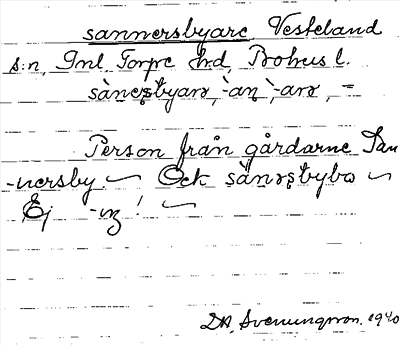 sannersbyare, Vesteland
s:n, Inl. Torpe hd, Bohus l.
sànesbyarə, -an, -arə, =
Person från gårdarne San
-nersby. ~ Ock sànərsbybo ~
Ej -ɪŋ! ~
DA, Svenungsson. 1940